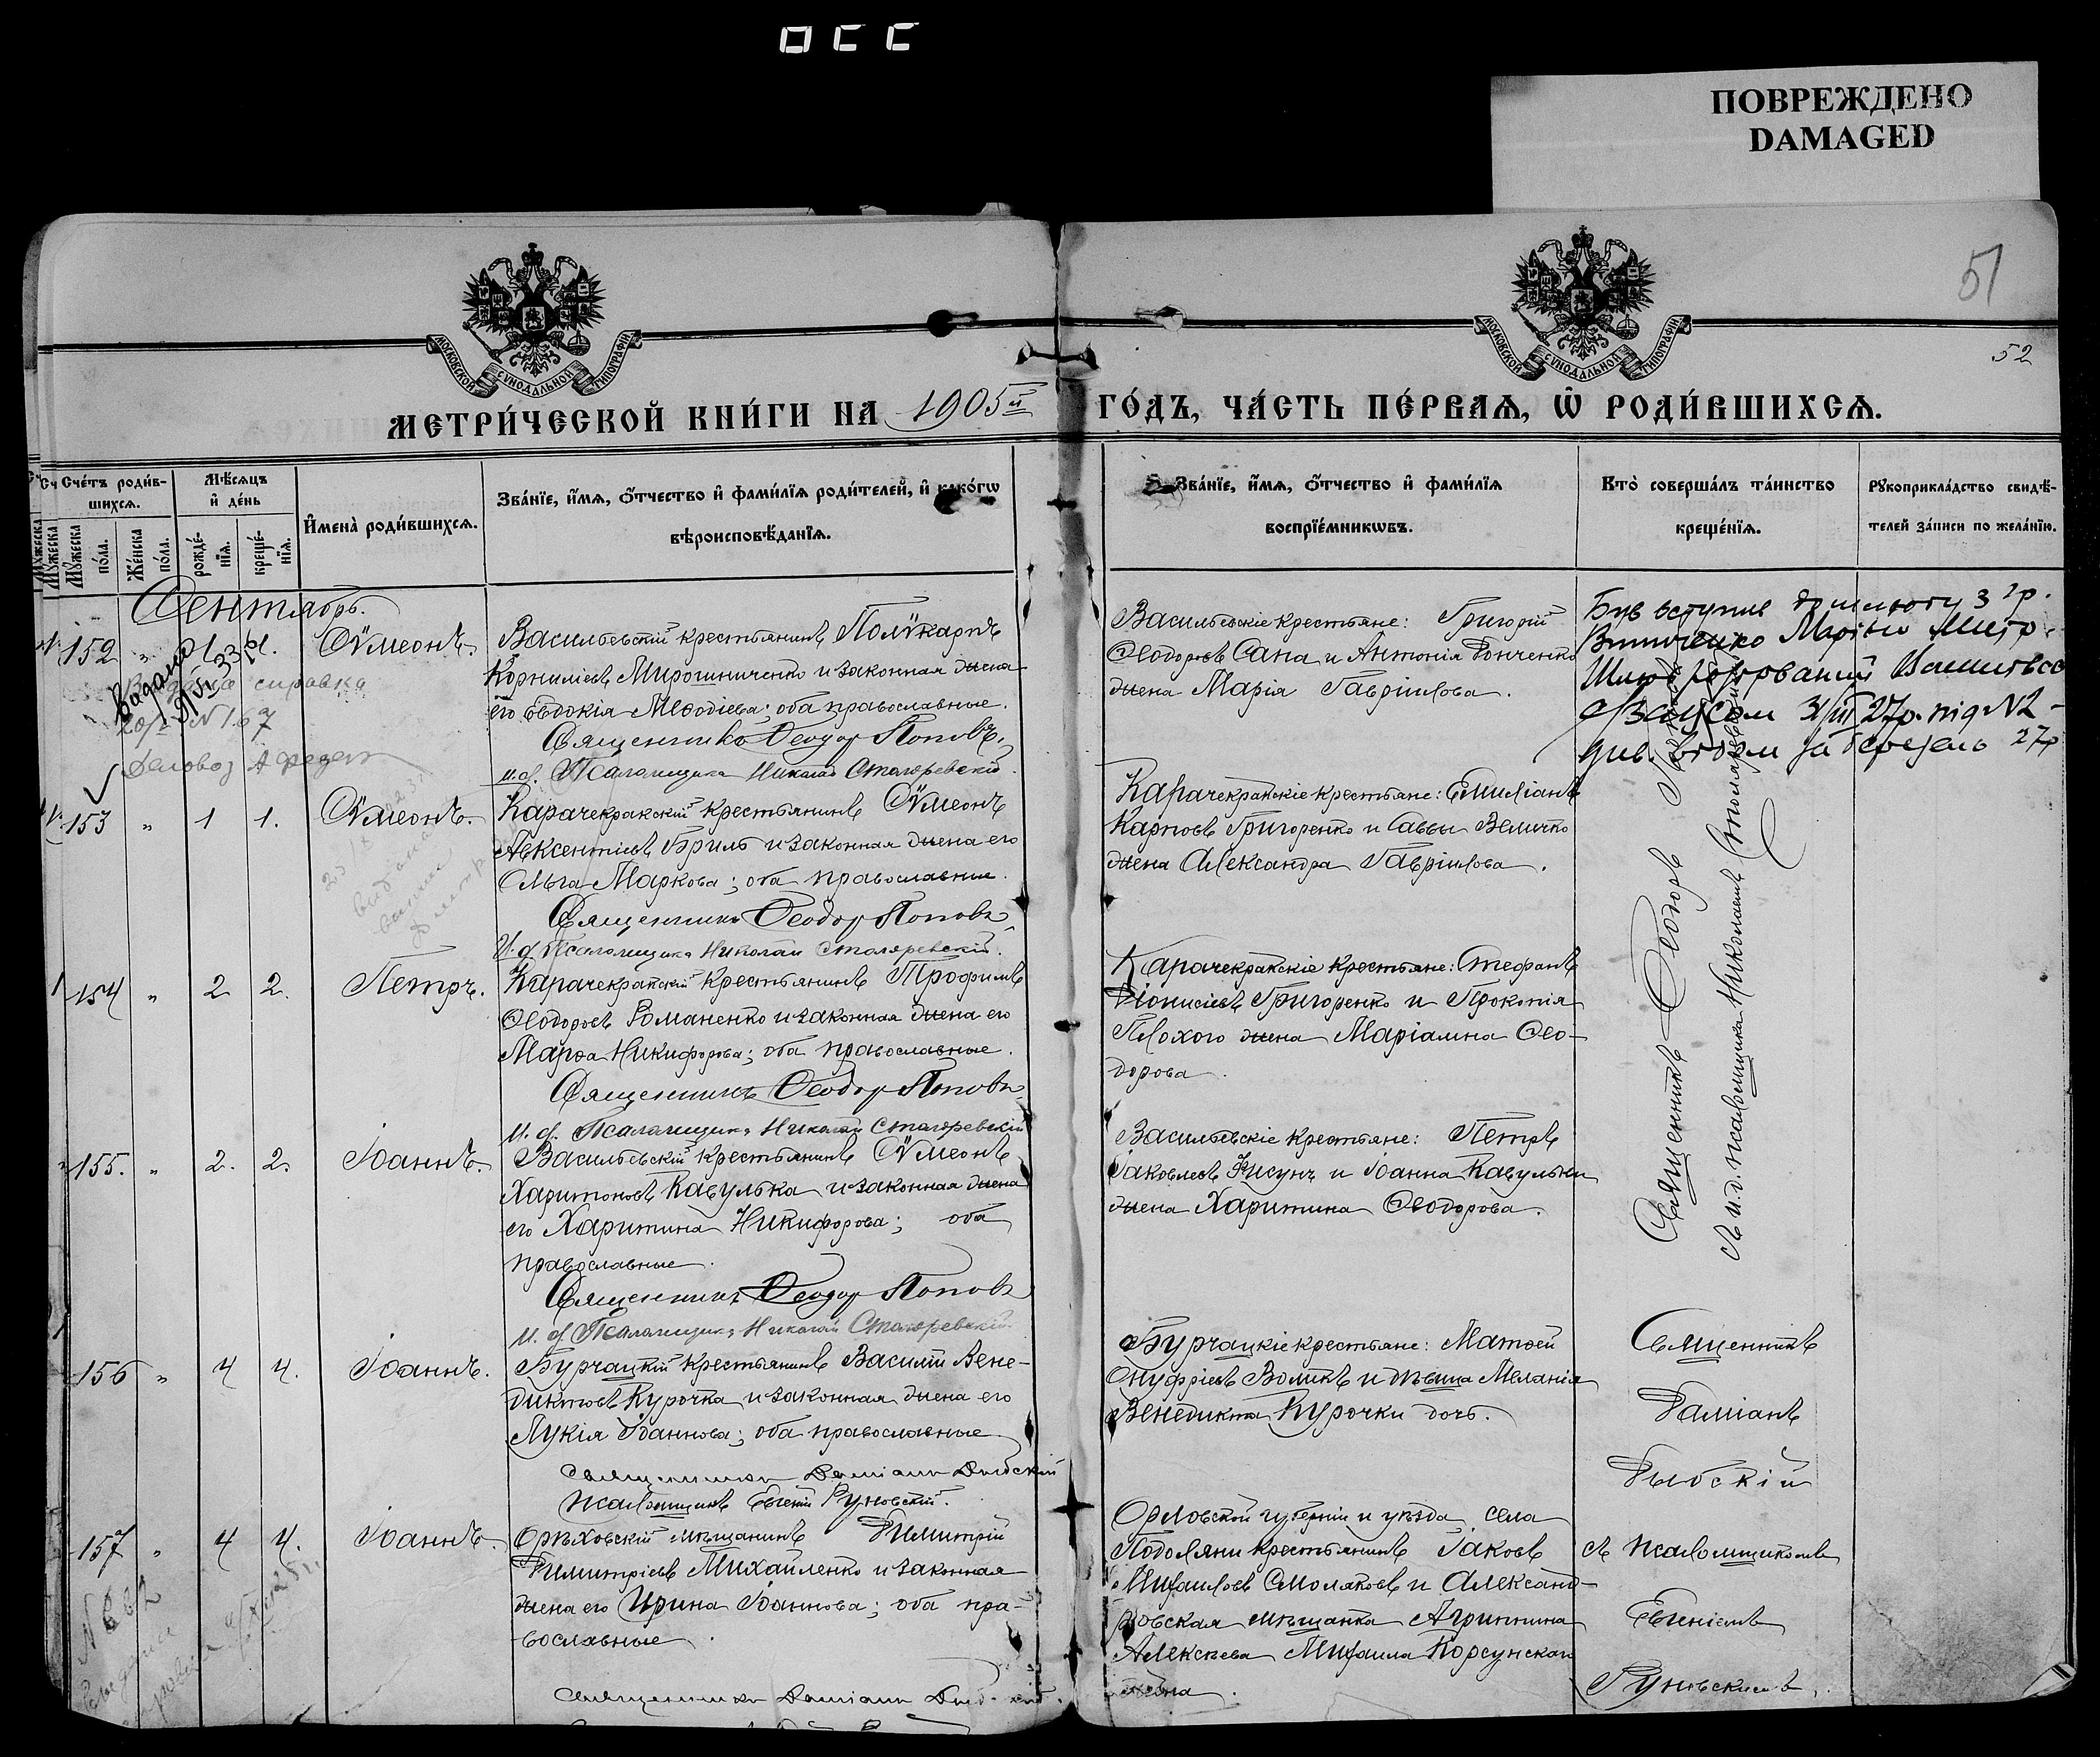 ПОВРЕЖДЕНО
DAMAGED
51
52
МОСКОВСКОЙ СѴНОДАЛЬНОЙ ТИПОГРАФІИ
МОСКОВСКОЙ СѴНОДАЛЬНОЙ ТИПОГРАФІИ
МЕТРИ́ЧЕСКОЙ КНИ́ГИ НА 1905й ГО́ДЪ, ЧА́СТЬ ПЕ́РВАѦ, Ѡ҆ РОДИ́ВШИХСѦ.
Сче́тъ роди́в-
шихсѧ.
Мꙋ́жеска по́ла.
Же́нска по́ла.
Мѣ́сѧцъ
и҆ де́нь
рожде́-
нїѧ.
креще́-
нїѧ.
И҆мена̀ роди́вшихсѧ.
Зва́нїе, и҆́мѧ, ѻ҆́тчество и҆ фами́лїѧ роди́телей, и҆ како́гѡ
вѣроисповѣ́данїѧ.
Зва́нїе, и҆́мѧ, ѻ҆́тчество и҆ фами́лїѧ
воспрїе́мникѡвъ.
Кто̀ соверша́лъ та́инство
креще́нїѧ.
Рꙋкоприкла́дство свидѣ́-
телей за́писи по жела́нїю.
Сентябрь.
152 " 1 1. Сѵмеонъ.
Васильевскій крестьянинъ Полѵкарпъ
Корниліевъ Мирошниченко и законная жена
его Евдокія Меѳодіева; оба православные.
Священникъ Ѳеодоръ Поповъ.
и. д. Псаломщика Николай Столяревскій
Васильевскіе крестьяне: Григорій
Ѳеодоровъ Сапа и Антонія Гонченко
жена Марія Гавріилова.
Выдана справка
№ 167
153 " 1 1. Сѵмеонъ.
Карачекракскій крестьянинъ Сѵмеонъ
Авксентіевъ Бриль и законная жена его
Ольга Маркова; оба православные.
Священникъ Ѳеодоръ Поповъ
И. д. Псаломщика Николай Столяревскій.
Карачекракскіе крестьяне: Емиліанъ
Карповъ Григоренко и Саввы Величко
жена Александра Гавріилова.
154 " 2 2. Петръ.
Карачекракскій крестьянинъ Трофимъ
Ѳеодоровъ Романенко и законная жена его
Марѳа Никифорова; оба православные.
Священникъ Ѳеодоръ Поповъ
И. д. Псаломщика Николай Столяревскій
Карачекракскіе крестьяне: Стефанъ
Діонисіевъ Григоренко и Прокопія
Плохого жена Маріамна Ѳео-
дорова.
155. " 2. 2. Іоаннъ.
Васильевскій крестьянинъ Сѵмеонъ
Харитоновъ Кавулька и законная жена
его Харитина Никифорова; оба
православные.
Священникъ Ѳеодоръ Поповъ
И. д. Псаломщика Николай Столяревскій
Васильевскіе крестьяне: Петръ
Іаковлевъ Фисунъ и Іоанна Кавульки
жена Харитина Ѳеодорова.
Священникъ Ѳеодоръ Поповъ
и и. д. псаломщика Николаемъ Столяревскимъ
156 " 4 4. Іоаннъ.
Бурчацкій крестьянинъ Василій Вене-
диктовъ Курочка и законная жена его
Лукія Іоаннова; оба православные
Священникъ Даміанъ Дыбскій
Псаломщикъ Евгеній Руновскій.
Бурчацкіе крестьяне: Матѳей
Онуфріевъ Воликъ и дѣвица Меланія
Венедикта Курочки дочь.
Священникъ
Даміанъ
Дыбскій
157 " 4 4. Іоаннъ.
Орѣховскій мѣщанинъ Димитрій
Димитріевъ Михайленко и законная
жена его Ирина Іоаннова; оба пра-
вославные.
Священникъ Даміанъ
Орловской губерніи и уѣзда, села
Подоляни крестьянинъ Іаковъ
Михаиловъ Смоляковъ и Александ-
ровская мѣщанка Агриппина
Алексѣева Михаила Корсунскаго
жена.
съ псаломщикомъ
Евгеніемъ
Руновскимъ.